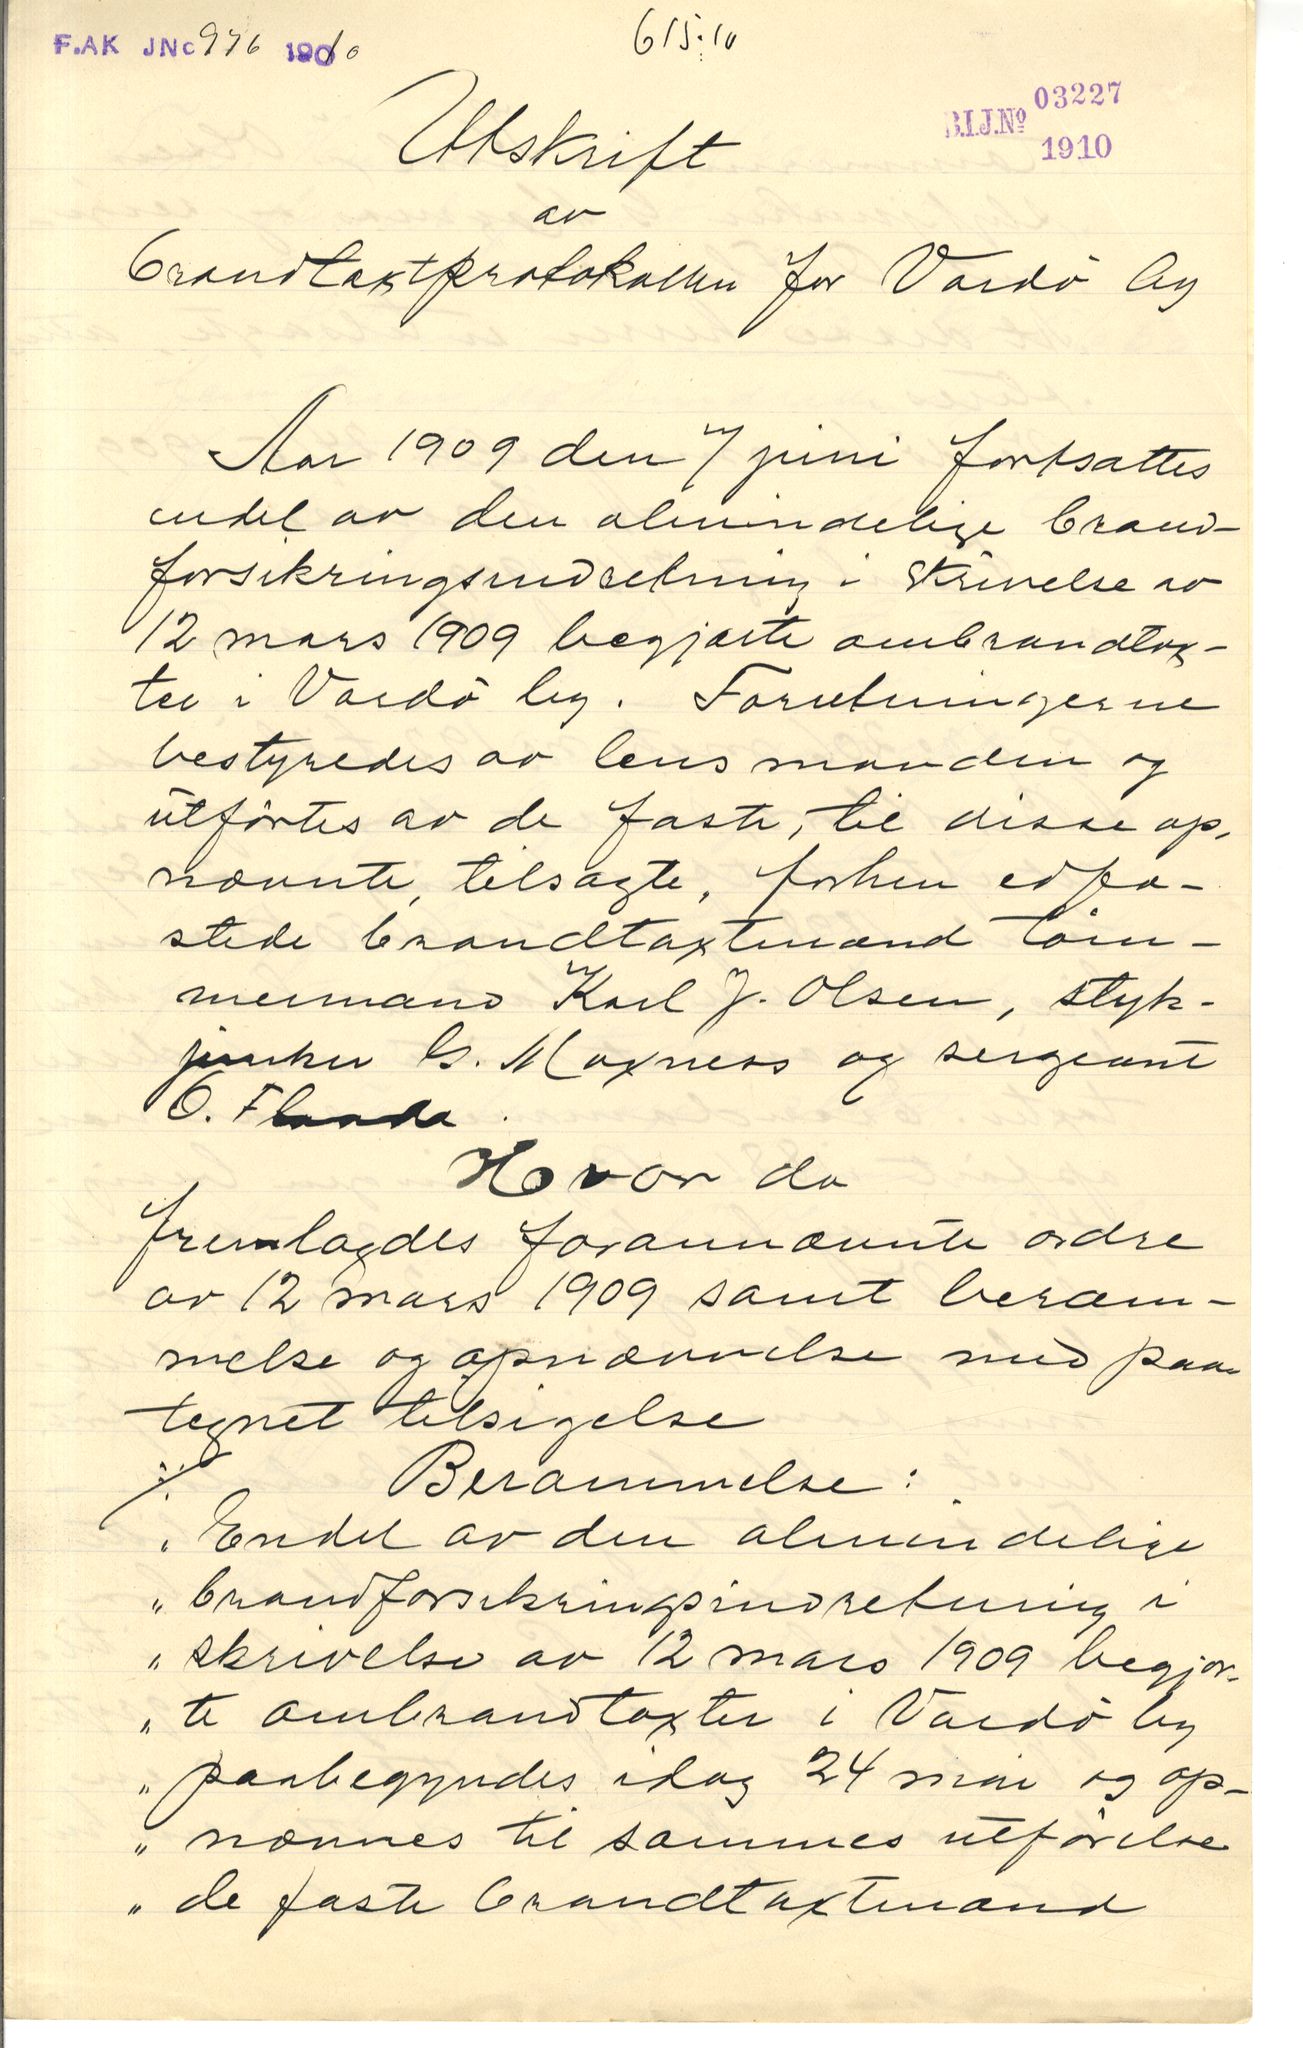 F.AK JNo 976 1910
615.10
B.I.J.No 03227
1910
Utskrift
av
brandtaxtprotokollen for Vardö by
Aar 1909 den 7 juni fortsattes
endel av den almindelige brand-
forsikringsindretning i skrivelse av
12 mars 1909 begjærte ombrandtax-
ter i Vardö by. Forretningerne
bestyredes av lensmanden og
utförtes av de faste, til disse op-
nævnte, tilsagte, forhen edfæ-
stede brandtaxtmænd töm-
mermand Karl J. Olsen, styk-
junker G. Moxness og sergeant
O. Flaada.
Hvor da
fremlagdes forannævnte ordre
av 12 mars 1909 samt beram-
melse og opnævnelse med paa-
tegnet tilsigelse
./. Berammelse:
" Endel av den almindelige
" brandforsikringsindretning i
" skrivelse av 12 mars 1909 begjær-
" te ombrandtaxter i Vardö by
" paabegyndes idag 24 mai og op-
" nævnes til sammes utförelse
" de faste brandtaxtmænd